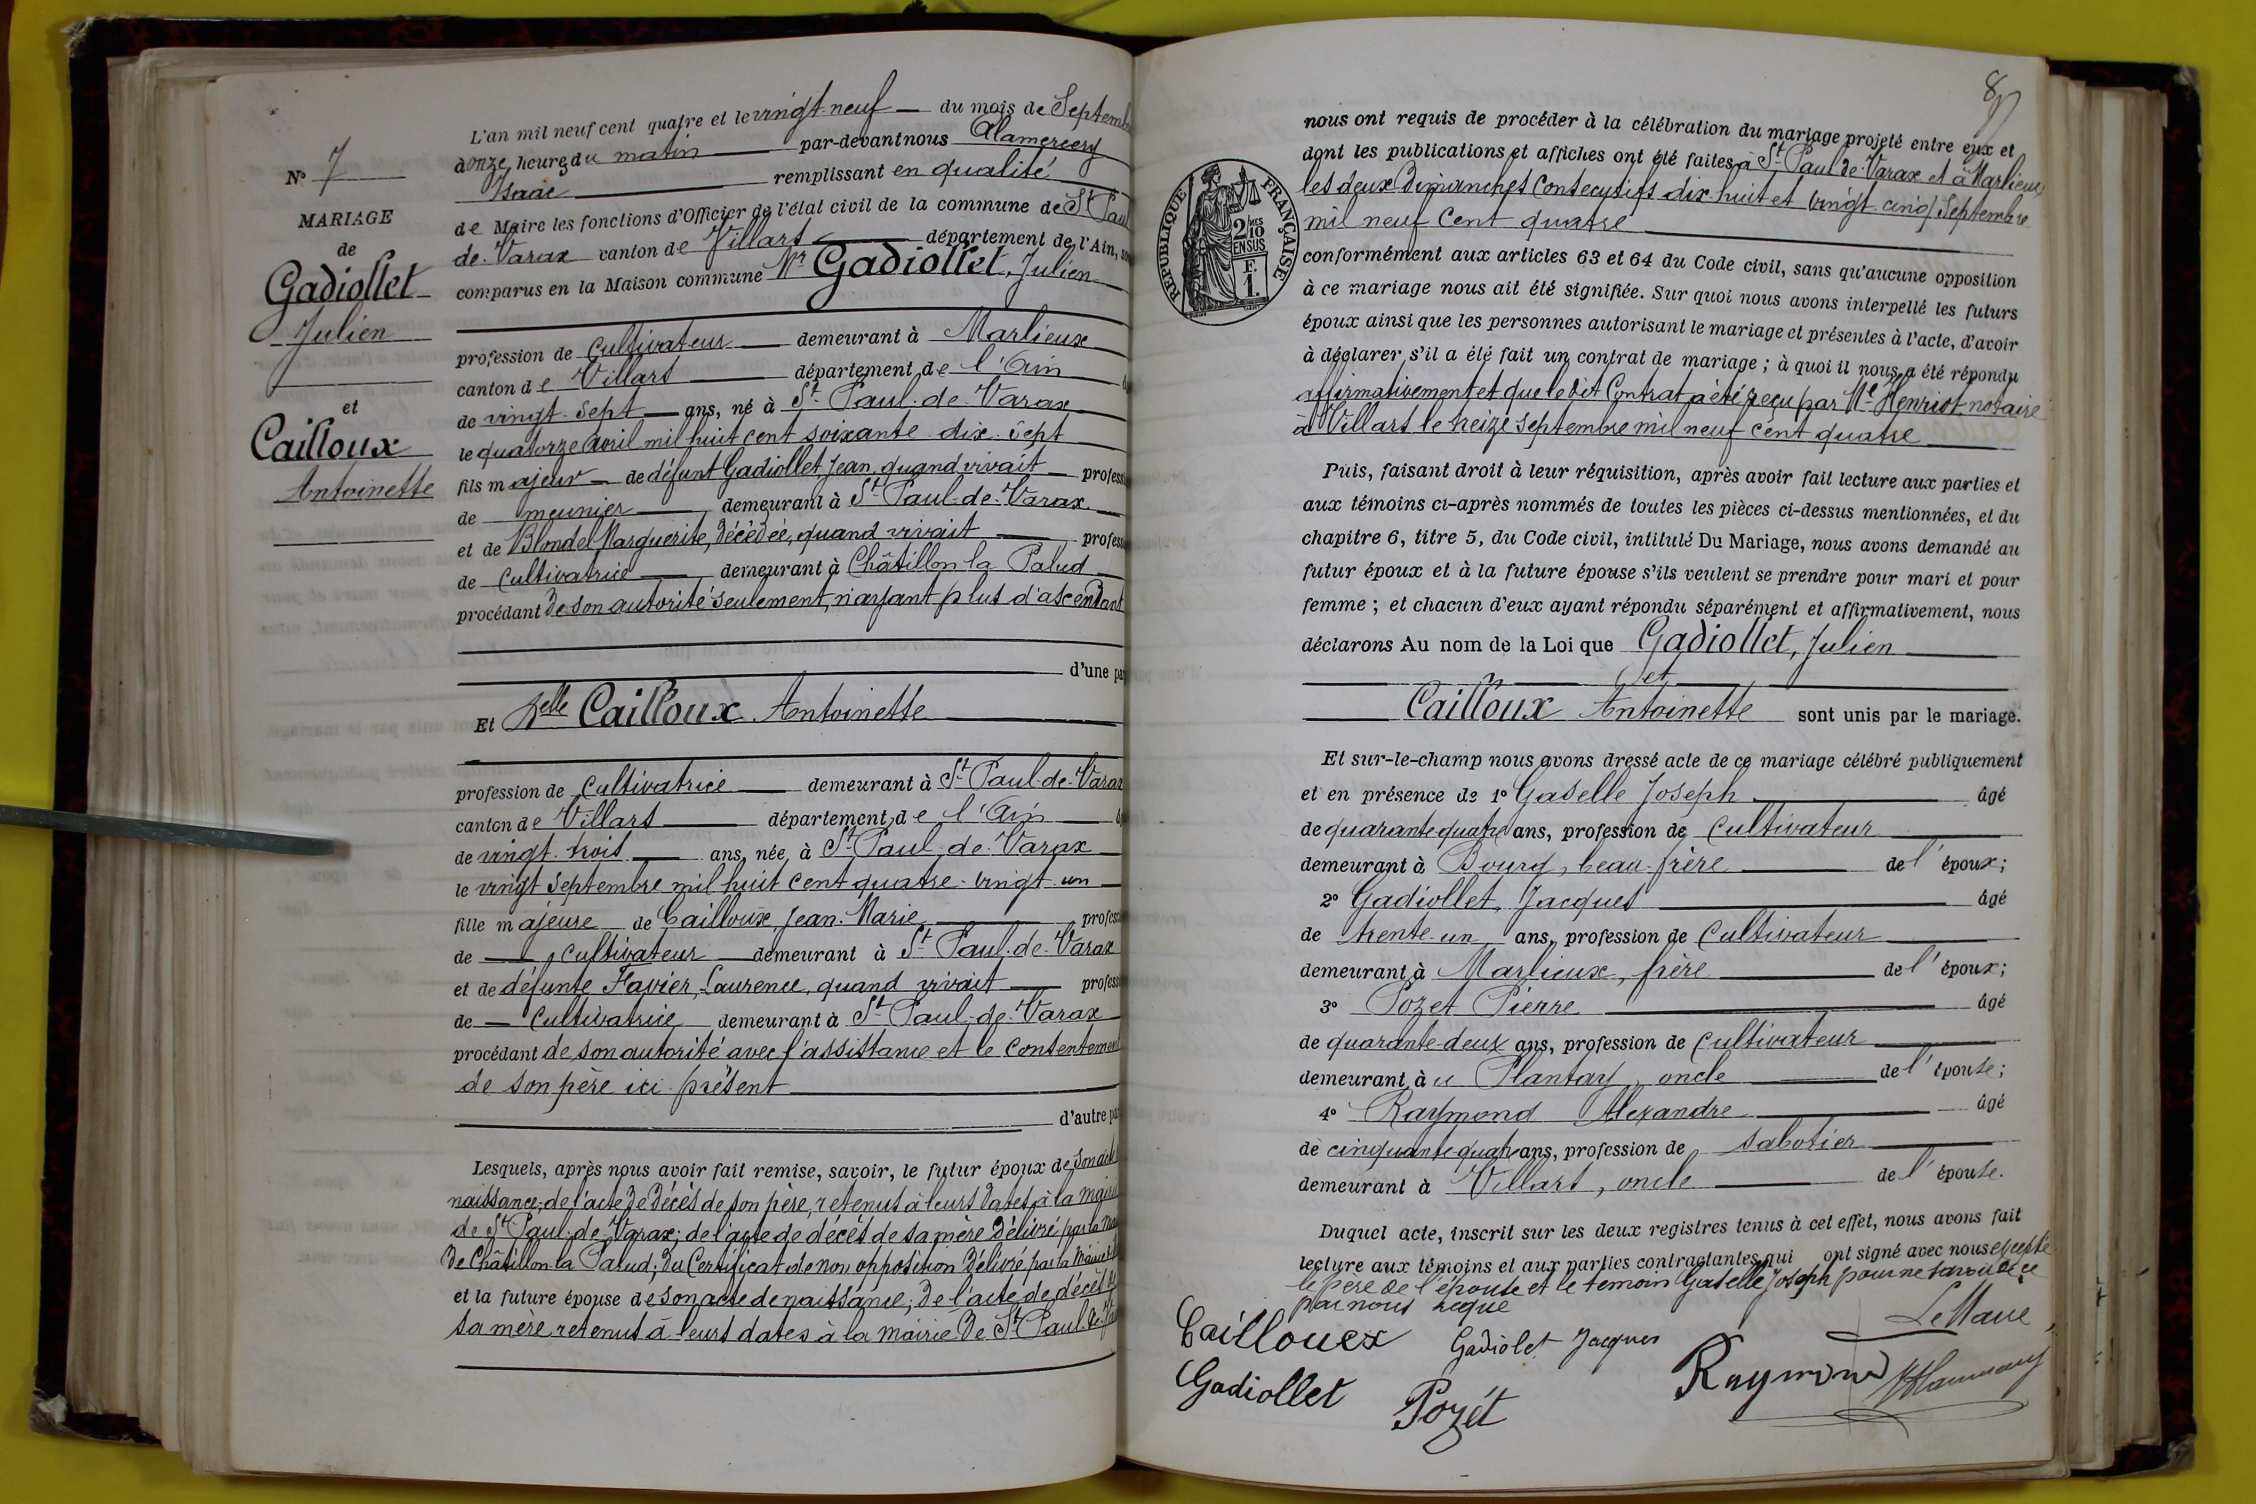 N° 7
MARIAGE
de
Gadiollet
Julien
et
Cailloux
Antoinette
L'an mil neuf cent quatre et le vingt-neuf du mois de Septemb
à onze heures du matin par-devant nous Alamercery
Isaac remplissant en qualité
de Maire les fonctions d'Officier de l'état civil de la commune de St Paul
de-Varax canton de Villars département de l'Ain, so
comparus en la Maison commune Mr Gadiollet, Julien
profession de cultivateur demeurant à Marlieux
canton de Villars département de l'Ain
de vingt-sept ans, né à St-Paul-de-Varax
le quatorze avril mil huit cent soixante-dix-sept
fils majeur de défunt Gadiollet Jean, quand vivait profess
de meunier demeurant à St-Paul-de-Varax
et de Blondel Marguerite, décédée, quand vivait profess
de cultivatrice demeurant à Châtillon la Palud
procédant de son autorité seulement, n'ayant plus d'ascendant
d'une pa
Et Delle Cailloux Antoinette
profession de cultivatrice demeurant à St-Paul-de-Varax
canton de Villars département de l'Ain
de vingt-trois ans, née à St-Paul-de-Varax
le vingt septembre mil huit cent quatre-vingt-un
fille majeure de Cailloux Jean-Marie profess
de cultivateur demeurant à St-Paul-de-Varax
et de défunte Favier, Laurence, quand vivait profess
de cultivatrice demeurant à St-Paul-de-Varax
procédant de son autorité avec l'assistance et le consentement
de son père ici présent
d'autre pa
Lesquels, après nous avoir fait remise, savoir, le futur époux de son acte
naissance; de l'acte de décès de son père, retenus à leurs dates à la mairie
de St-Paul-de-Varax; de l'acte de décès de sa mère délivré par la
de Châtillon la Palud; du Certificat de non opposition délivré par la Mairie
et la future épouse de son acte de naissance; de l'acte de décès de
sa mère retenus à leurs dates à la mairie de St-Paul-de-Va
nous ont requis de procéder à la célébration du mariage projeté entre eux et
dont les publications et affiches ont été faites à St-Paul-de-Varax et à Marlieux
les deux Dimanches consécutifs dix-huit et vingt-cinq Septembre
mil neuf cent quatre
RÉPUBLIQUE FRANÇAISE
2/10 EN SUS
F. 1.
conformément aux articles 63 et 64 du Code civil, sans qu'aucune opposition
à ce mariage nous ait été signifiée. Sur quoi nous avons interpellé les futurs
époux ainsi que les personnes autorisant le mariage et présentes à l'acte, d'avoir
à déclarer s'il a été fait un contrat de mariage ; à quoi il nous a été répondu
affirmativement et que le dit Contrat a été reçu par Me Henriot notaire
à Villars le treize septembre mil neuf cent quatre
Puis, faisant droit à leur réquisition, après avoir fait lecture aux parties et
aux témoins ci-après nommés de toutes les pièces ci-dessus mentionnées, et du
chapitre 6, titre 5, du Code civil, intitulé Du Mariage, nous avons demandé au
futur époux et à la future épouse s'ils veulent se prendre pour mari et pour
femme ; et chacun d'eux ayant répondu séparément et affirmativement, nous
déclarons Au nom de la Loi que Gadiollet, Julien
et
Cailloux Antoinette sont unis par le mariage.
Et sur-le-champ nous avons dressé acte de ce mariage célébré publiquement
et en présence de 1° Gaselle Joseph âgé
de quarante quatre ans, profession de cultivateur
demeurant à Bourg, beau-frère de l'époux;
2° Gadiollet, Jacques âgé
de trente-un ans, profession de cultivateur
demeurant à Marlieux, frère de l'époux;
3° Pozet Pierre âgé
de quarante-deux ans, profession de cultivateur
demeurant au Plantay, oncle de l'épouse;
4° Raymond Alexandre âgé
de cinquante quatre ans, profession de sabotier
demeurant à Villars, oncle de l'épouse.
Duquel acte, inscrit sur les deux registres tenus à cet effet, nous avons fait
lecture aux témoins et aux parties contractantes qui ont signé avec nous excepté
le père de l'épouse et le témoin Gaselle Joseph pour ne savoir de ce
par nous requis
Le Maire,
Caillouex Gadiolet Jacques
Gadiollet Pozét Raymond